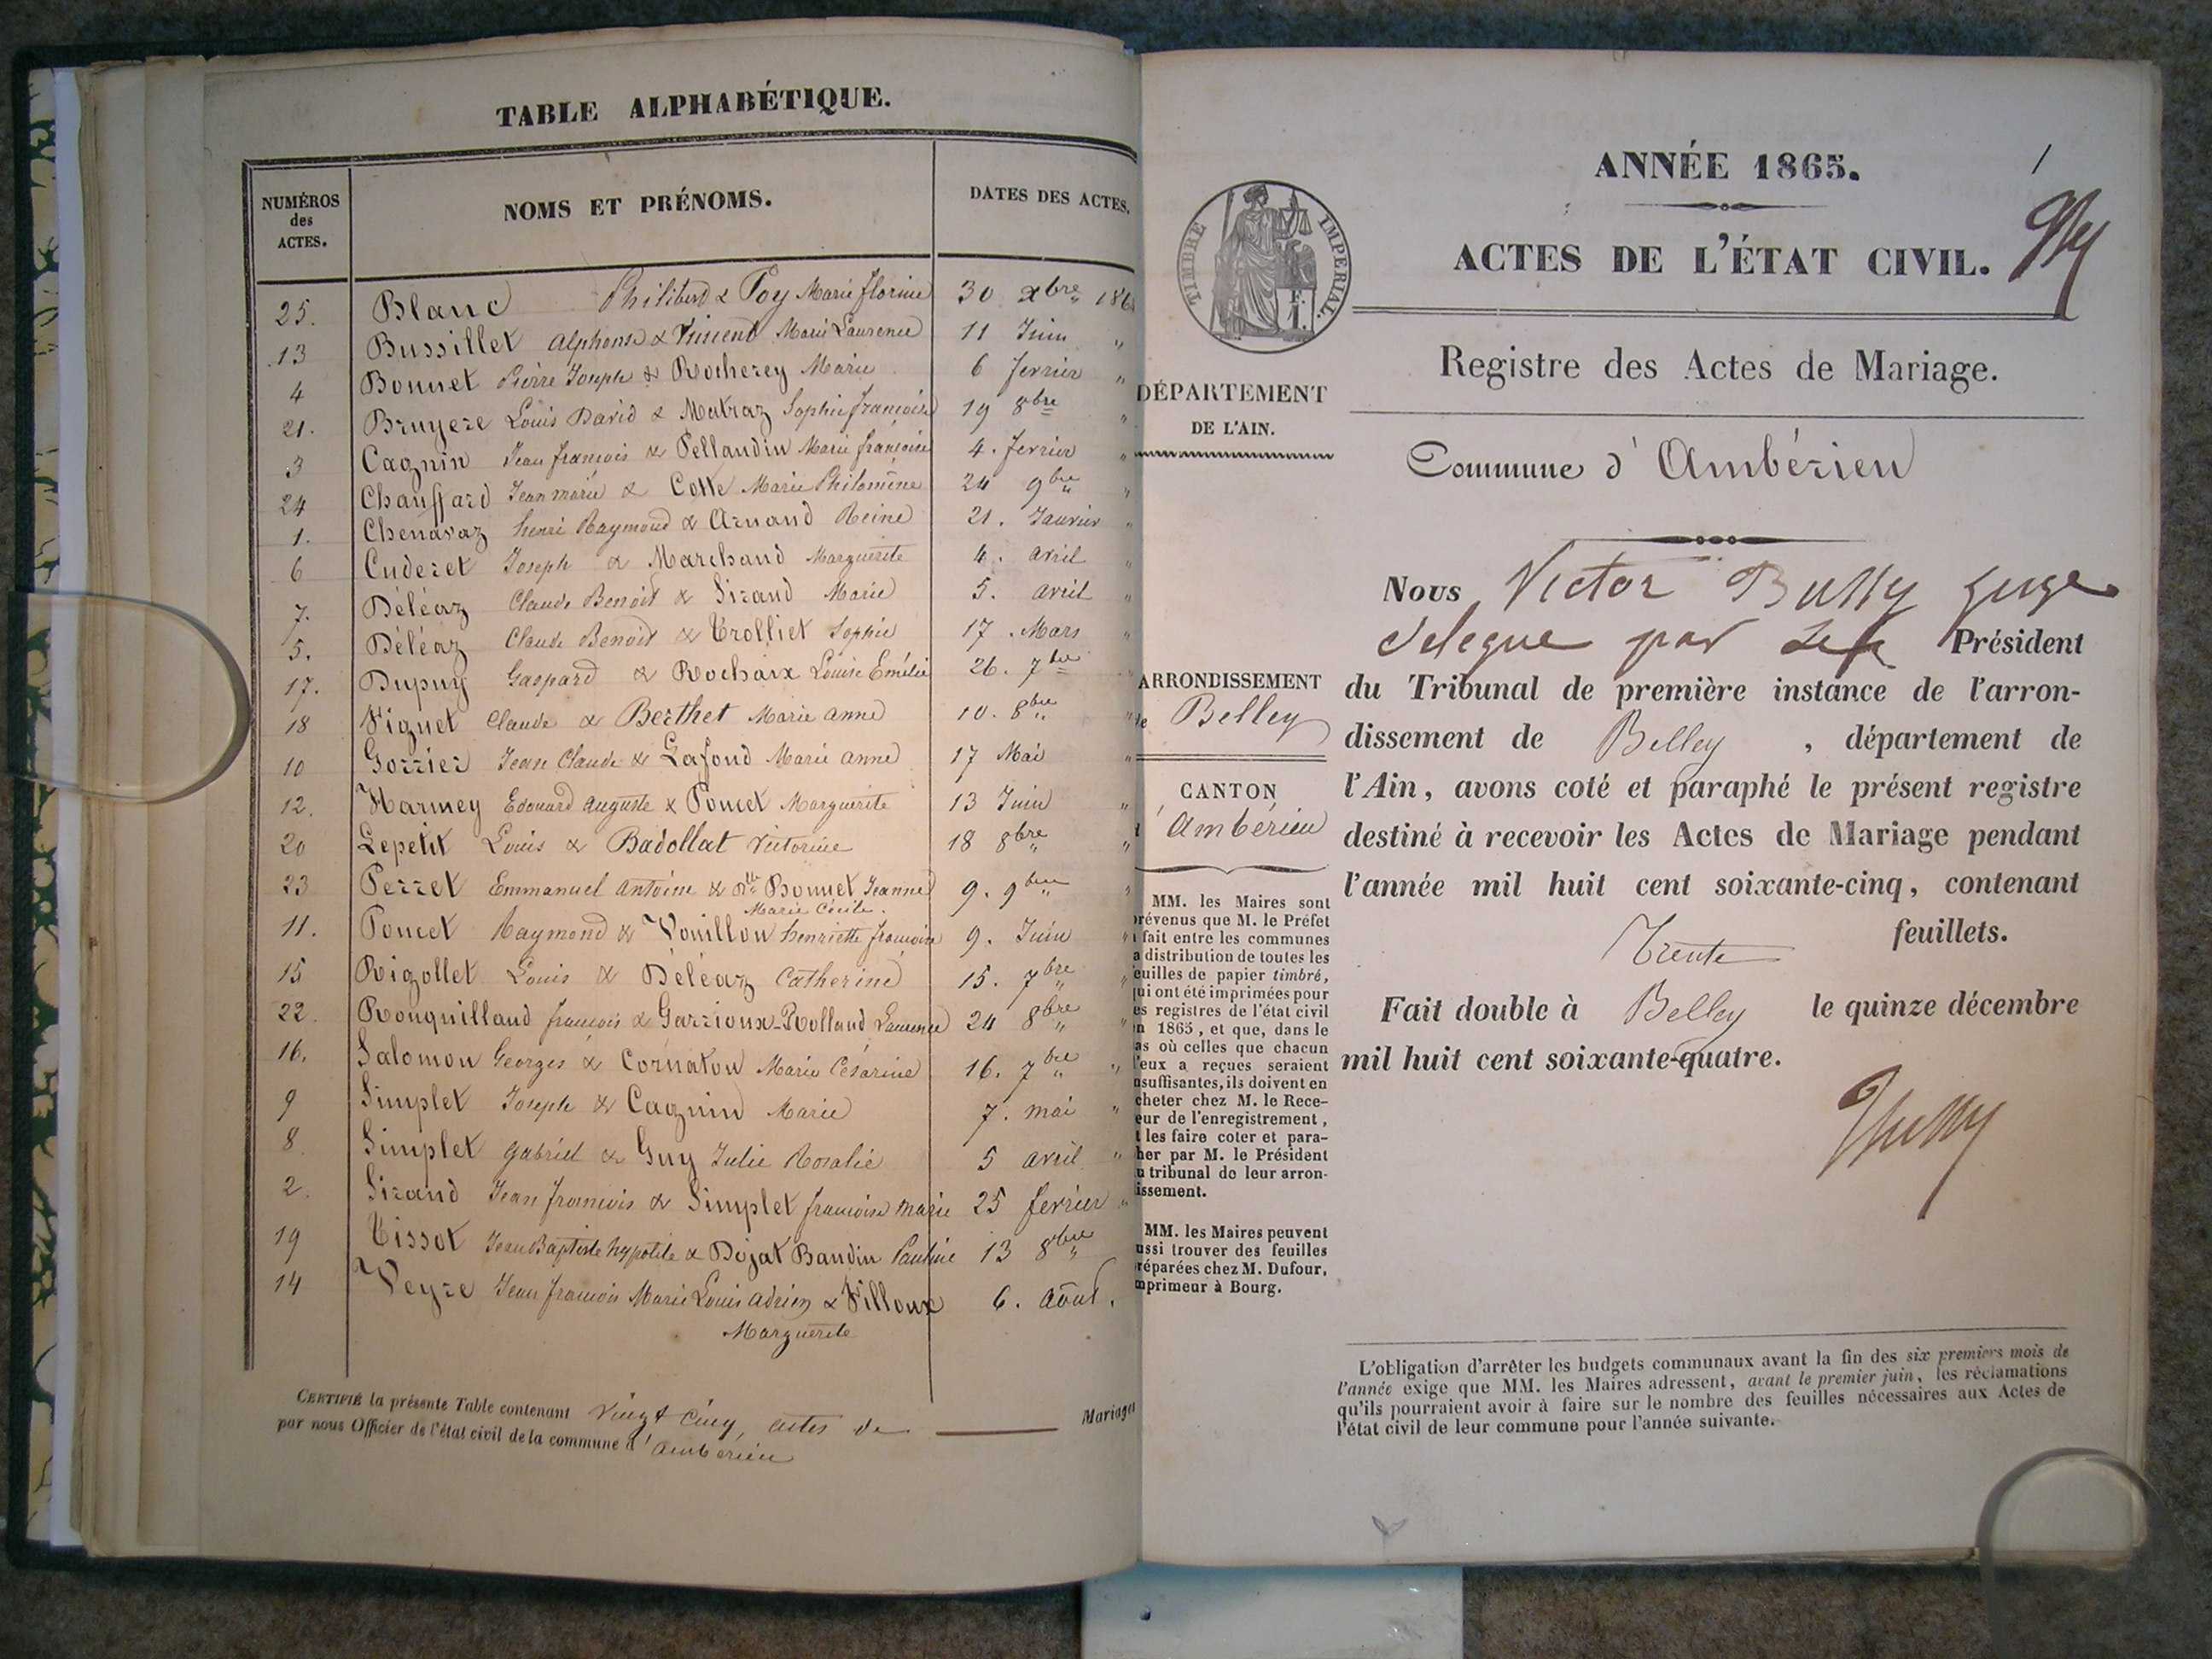 TABLE ALPHABÉTIQUE.
NUMÉROS des ACTES. NOMS ET PRÉNOMS. DATES DES ACTES.
25. Blanc Philibert & Foy Marie florine 30 xbre 186
13 Bussillet Alphonse & Vincent Marie Laurence 11 Juin "
4 Bonnet Pierre Joseph & Rocherey Marie 6 fevrier "
21. Bruyere Louis David & Matraz Sophie françoise 19 8bre "
3 Cagnin Jean francois & Pellaudin Marie françoise 4. fevrier "
24 Chauffard Jean marie & Cotte Marie Philomène 24 9bre "
1. Chenavaz henri Raymond & Arnaud Reine 21. Janvier "
6 Cuderet Joseph & Marchand Marguerite 4. avril "
7. Déléaz Claude Benoit & Sirand Marie 5. avril "
5. Déléaz Claude Benoit & Trolliet Sophie 17. Mars "
17. Dupuy Gaspard & Rochaix Louise Emélie 26. 7bre "
18 Figuet Claude & Berthet Marie anne 10. 8bre "
10 Gorrier Jean Claude & Lafond Marie anne 17 Mai "
12. Harmey Edouard auguste & Poncet Marguerite 13 Juin "
20 Lepetit Louis & Badollat Victorine 18 8bre "
23 Perret Emmanuel antoine & Dlle Bonnet Jeanne 9. 9bre "
Marie Cécile.
11. Poncet Raymond & Vouillon henriette francoise 9. Juin "
15 Rigollet Louis & Déléaz Catherine 15. 7bre "
22. Ronquilland francois & Garrioux-Rolland Laurence 24 8bre "
16. Salomon Georges & Cornaton Marie Césarine 16. 7bre "
9 Simplet Joseph & Cagnin Marie 7. mai "
8. Simplet gabriel & Guy Julie Rosalie 5 avril "
2. Sirand Jean francois & Simplet francoise marie 25 fevrier "
19 Tissot Jean Baptiste hypolite & Dojat Bandin Pauline 13 8bre "
14 Veyre Jean francois Marie Louis adrien & Villoux 6. Aôut.
Marguerite
CERTIFIÉ la présente Table contenant vingt cinq actes de Mariages
par nous Officier de l'état civil de la commune d'Ambérieu
ANNÉE 1865.
1
ACTES DE L'ÉTAT CIVIL.
TIMBRE IMPERIAL.
Registre des Actes de Mariage.
DÉPARTEMENT
DE L'AIN.
Commune d'Ambérieu
ARRONDISSEMENT
de Belley
CANTON
d'Ambérieu
MM. les Maires sont
révenus que M. le Préfet
fait entre les communes
a distribution de toutes les
euilles de papier timbré,
ui ont été imprimées pour
es registres de l'état civil
n 1865, et que, dans le
as où celles que chacun
'eux a reçues seraient
nsuffisantes, ils doivent en
cheter chez M. le Rece-
eur de l'enregistrement,
t les faire coter et para-
her par M. le Président
u tribunal de leur arron-
issement.
MM. les Maires peuvent
ussi trouver des feuilles
réparées chez M. Dufour,
mprimeur à Bourg.
Nous Victor Bussy juge
delegue par le Président
du Tribunal de première instance de l'arron-
dissement de Belley, département de
l'Ain, avons coté et paraphé le présent registre
destiné à recevoir les Actes de Mariage pendant
l'année mil huit cent soixante-cinq, contenant
Trente feuillets.
Fait double à Belley le quinze décembre
mil huit cent soixante-quatre.
L'obligation d'arrêter les budgets communaux avant la fin des six premiers mois de
l'année exige que MM. les Maires adressent, avant le premier juin, les réclamations
qu'ils pourraient avoir à faire sur le nombre des feuilles nécessaires aux Actes de
l'état civil de leur commune pour l'année suivante.